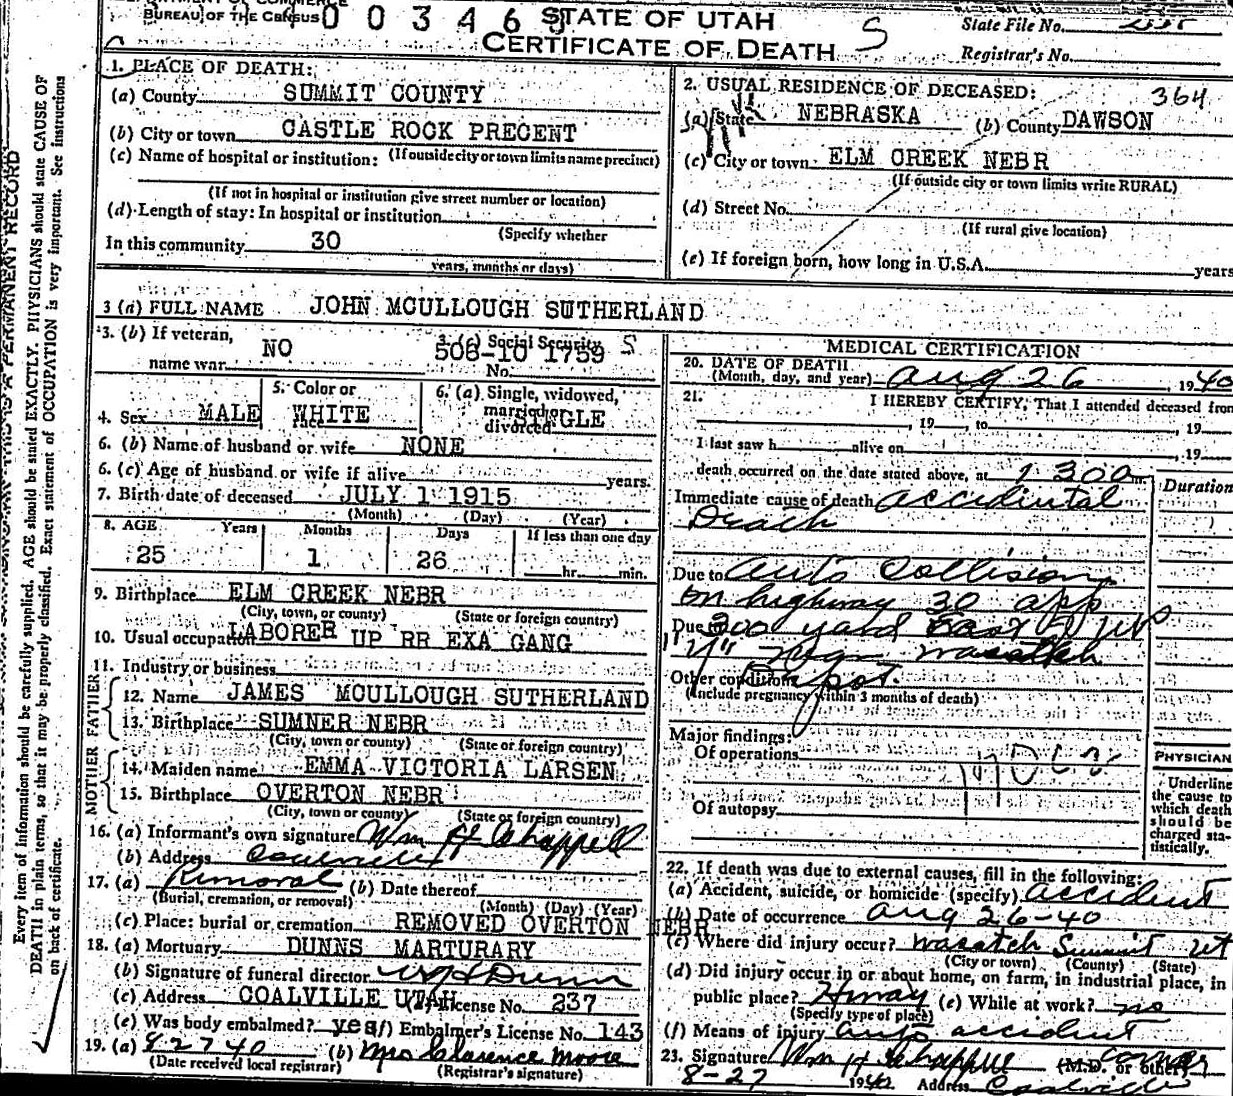 BUREAU OF THE CENSUS 0 0 3 4 6 STATE OF UTAH
State File No.
CERTIFICATE OF DEATH S
Registrar's No.
Every item of information should be carefully supplied. AGE should be stated EXACTLY. PHYSICIANS should state CAUSE OF
DEATH in plain terms, so that it may be properly classified. Exact statement of OCCUPATION is very important. See instructions
on back of certificate.
1. PLACE OF DEATH:
(a) County SUMMIT COUNTY
(b) City or town CASTLE ROCK PRECENT
(c) Name of hospital or institution: (If outside city or town limits name precinct)
(If not in hospital or institution give street number or location)
(d) Length of stay: In hospital or institution
(Specify whether
In this community 30
years, months or days)
2. USUAL RESIDENCE OF DECEASED:
364
(a) State NEBRASKA (b) County DAWSON
(c) City or town ELM CREEK NEBR
(If outside city or town limits write RURAL)
(d) Street No.
(If rural give location)
(e) If foreign born, how long in U.S.A. years
3 (a) FULL NAME JOHN MCULLOUGH SUTHERLAND
3. (b) If veteran,
name war NO
3. (c) Social Security S
No. 508-10 1759
4. Sex MALE
5. Color or
race WHITE
6. (a) Single, widowed,
married or
divorced SINGLE
6. (b) Name of husband or wife NONE
6. (c) Age of husband or wife if alive years.
7. Birth date of deceased JULY 1 1915
(Month) (Day) (Year)
8. AGE Years Months Days If less than one day
25 1 26 hr. min.
9. Birthplace ELM CREEK NEBR
(City, town, or county) (State or foreign country)
10. Usual occupation LABORER UP RR EXA GANG
11. Industry or business
FATHER
12. Name JAMES MCULLOUGH SUTHERLAND
13. Birthplace SUMNER NEBR
(City, town or county) (State or foreign country)
MOTHER
14. Maiden name EMMA VICTORIA LARSEN
15. Birthplace OVERTON NEBR
(City, town or county) (State or foreign country)
16. (a) Informant's own signature Wm H Schappell
(b) Address Coalville
17. (a) Removal (b) Date thereof
(Burial, cremation, or removal) (Month) (Day) (Year)
(c) Place: burial or cremation REMOVED OVERTON NEBR
18. (a) Mortuary DUNNS MARTURARY
(b) Signature of funeral director W H Dunn
(c) Address COALVILLE UTAH License No. 237
(e) Was body embalmed? yes (f) Embalmer's License No. 143
19. (a) 8 27 40 (b) Mrs Clarence Moore
(Date received local registrar) (Registrar's signature)
MEDICAL CERTIFICATION
20. DATE OF DEATH
(Month, day, and year) Aug 26, 1940
21. I HEREBY CERTIFY, That I attended deceased from
, 19 , to , 19
I last saw h alive on , 19
death occurred on the date stated above, at 1 30 a m.
Duration
Immediate cause of death accidental
Death
Due to Auto Collision
on highway 30 app
Due to 300 yard East of
near Wasatch
Other conditions Depot.
(Include pregnancy within 3 months of death)
Major findings:
Of operations
Of autopsy
PHYSICIAN
Underline
the cause to
which death
should be
charged sta-
tistically.
22. If death was due to external causes, fill in the following:
(a) Accident, suicide, or homicide (specify) accident
(b) Date of occurrence Aug 26-40
(c) Where did injury occur? Wasatch Summit Ut
(City or town) (County) (State)
(d) Did injury occur in or about home, on farm, in industrial place, in
public place? Hiway (e) While at work? no
(Specify type of place)
(f) Means of injury auto accident
23. Signature Wm H Schappell (M.D. or other) Coroner
8-27 1940 Address Coalville